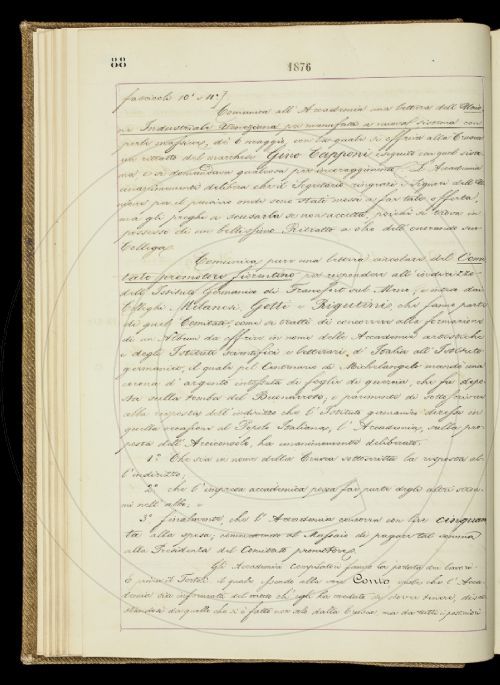 88
1876
fascicoli 10° e 11°]
Comunica all'Accademia una lettera dell'Unio-
ne Industriale Veneziana pei manufatti a nuovo sistema con
perle muranesi, de' 6 maggio, con la quale si offriva alla Crusca
un ritratto del marchese Gino Capponi eseguito con quel siste-
ma, e si domandava qualcosa per incoraggiamento. L'Accademia
unanimemente delibera che il Segretario ringrazi i Signori dell'U-
nione per il pensiero onde sono stati mossi a far tale offerta,
ma gli preghi a scusarla se non accetta, poichè si trova in
possesso di un bellissimo Ritratto a olio dell'onorando suo
Collega.
Comunica pure una lettera circolare del Comi-
tato promotore fiorentino per rispondere all'indirizzo
dello Istituto Germanico di Francfort sul Meno, e intesa dai
Colleghi Milanesi, Gotti e Rigutini, che fanno parte
di quel Comitato, come si tratti di concorrere alla formazione
di un Album da offrire in nome delle Accademie artistiche
e degli Istituti scientifici e letterari d'Italia all'Istituto
germanico, il quale pel Centenario di Michelangelo mandò una
corona d'argento intessuta di foglie di quercia, che fu depo-
sta sulla tomba del Buonarroti, e parimente di sottoscrivere
alla risposta dell'indirizzo che l'Istituto germanico diresse in
quella occasione al Popolo Italiano, l'Accademia, sulla pro-
posta dell'Arciconsolo, ha unanimemente deliberato,
1° Che sia in nome della Crusca sottoscritta la risposta al-
l'indirizzo;
2° che l'impresa accademica possa far parte degli altri stem-
mi nell'albo, e
3° finalmente, che l'Accademia concorra con lire cinquan-
ta alla spesa, commettendo al Massaio di pagar tal somma
alla Presidenza del Comitato promotore.
Gli Accademici compilatori fanno la posata dei lavori.
E prima il Tortoli, il quale essendo alla voce Conio vuole che l'Acca-
demia sia informata del modo ch'egli ha creduto di dover tenere, disco-
standosi da quello che si è fatto non solo dalla Crusca, ma da tutti i posteriori